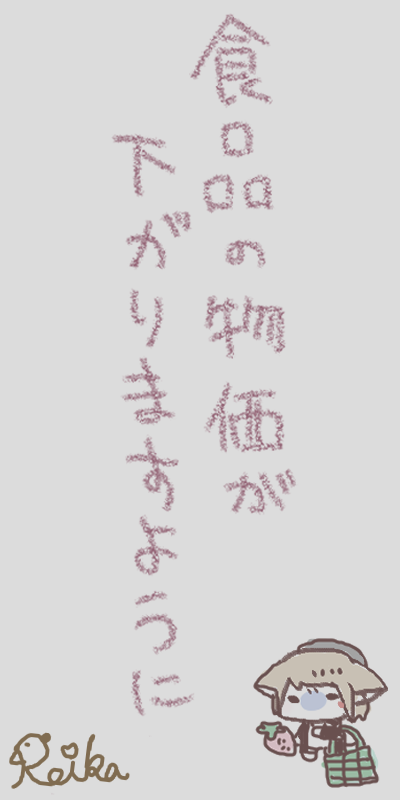 食品の物価が
下がりますように
Reika